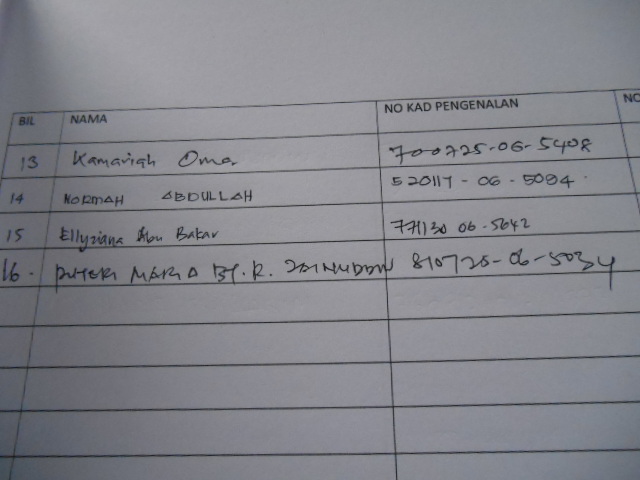 BIL NAMA NO KAD PENGENALAN NO
13 Kamariah Omar 700725-06-5408
14 NORMAH ABDULLAH 520117-06-5094
15 Ellyziana Abu Bakar 771130 06-5642
16. PUTERI MARIA BT. R. ZAINUDDIN 810725-06-5034